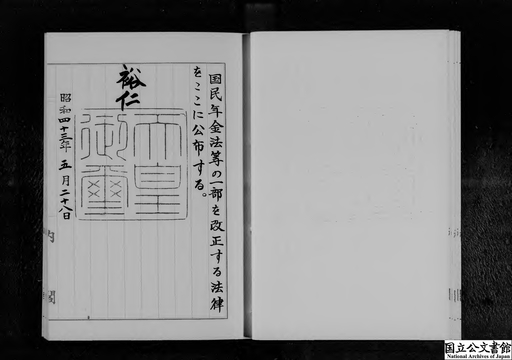 国民年金法等の一部を改正する法律
をここに公布する。
裕仁
天皇
御璽
昭和四十三年五月二十八日
内閣
国立公文書館
National Archives of Japan